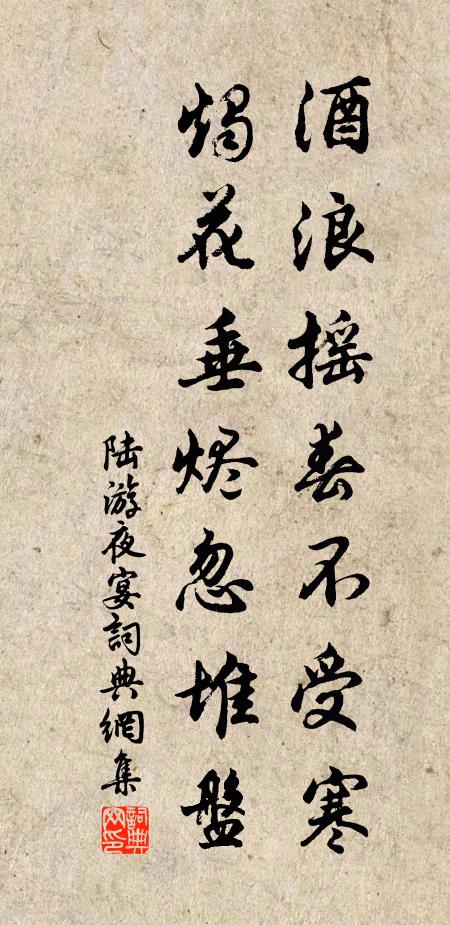 酒浪摇春不受寒
烛花垂烬忽堆盤
陆游夜宴詞典網集
詞典
网印